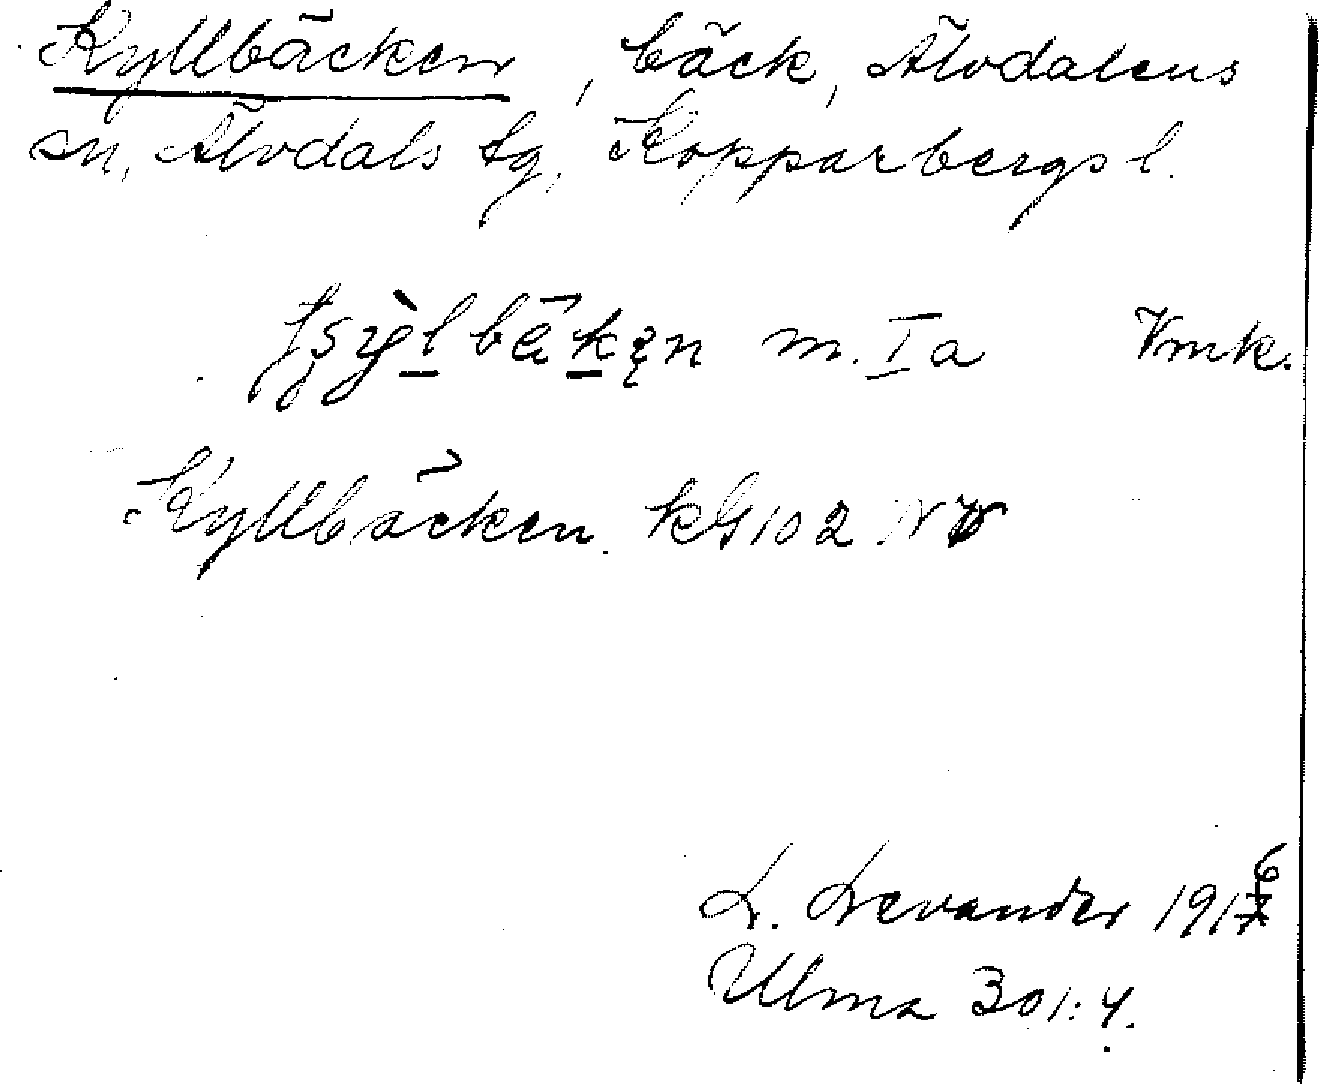 Kyllbäcken, bäck, Älvdalens
sn, Älvdals tg, Kopparbergs l.
m. I a Vmk.
Kyllbäcken kG 102 NV
L. Levander 1916
Ulma 301:4.